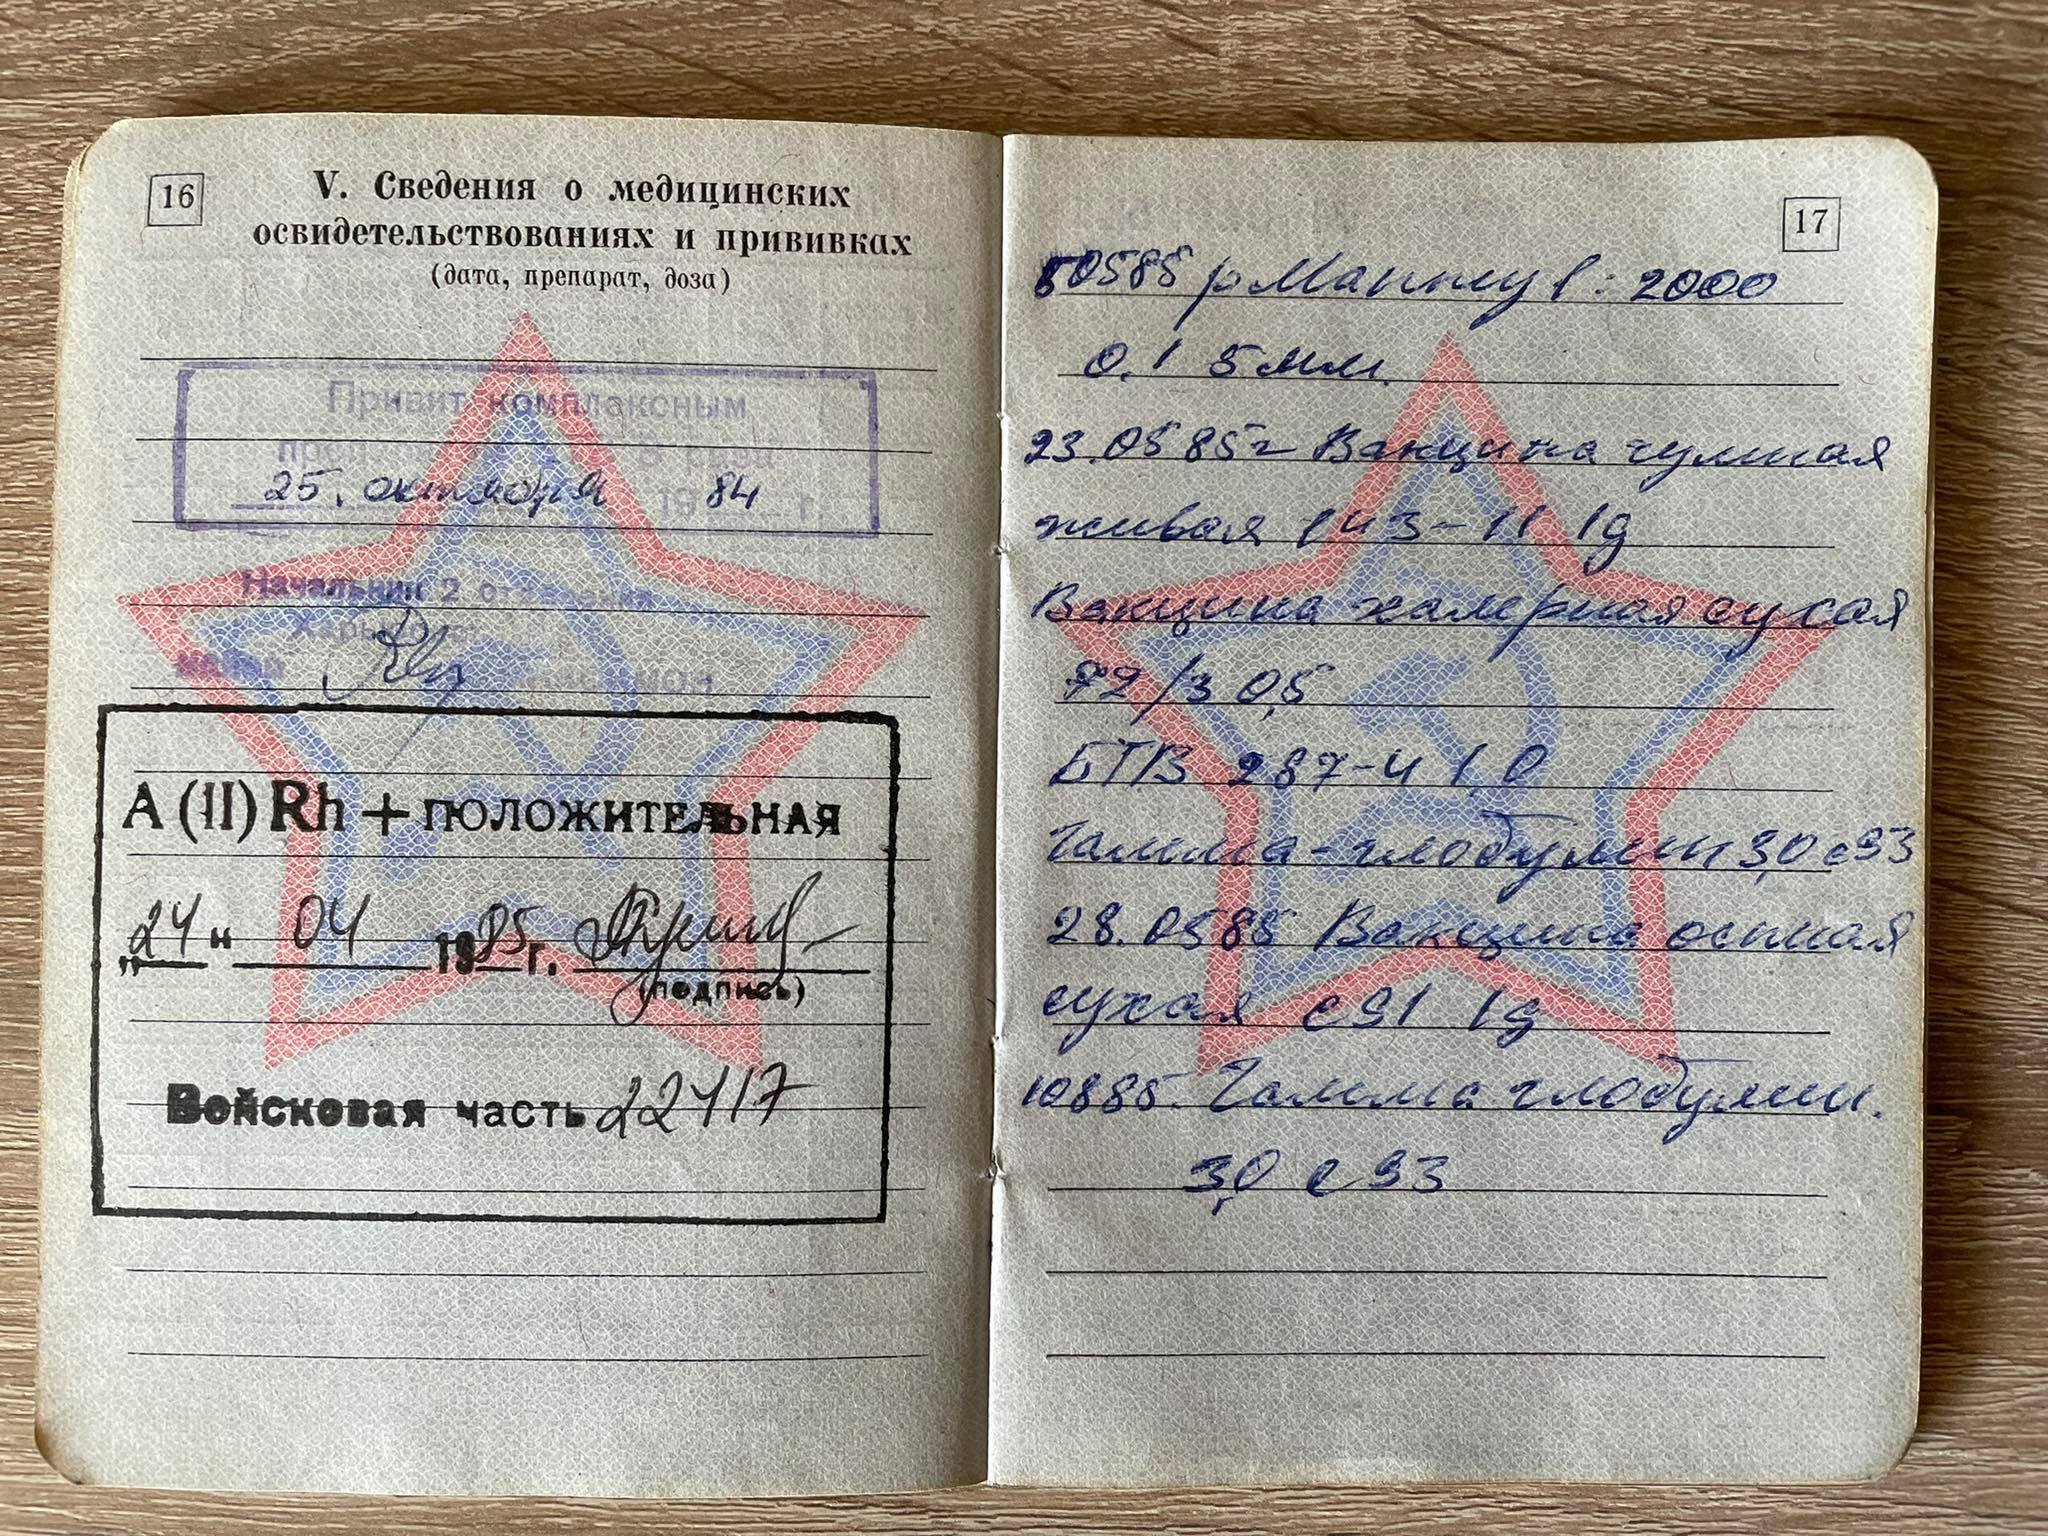 16
V. Сведения о медицинских
освидетельствованиях и прививках
(дата, препарат, доза)
Привит комплексным
25. октября 1984 г.
Начальник 2 отделения
майор
A (II) Rh + ПОЛОЖИТЕЛЬНАЯ
"24" 04 1985 г.
(подпись)
Войсковая часть 22417
17
50585 р Манту 1:2000
0.1 5мм.
23.0585г Вакцина чумная
живая 143-11 1д
Вакцина халерная сухая
72/3 0,5
БТВ 287-4 1,0
Гамма-глобулин 3,0 с93
28.0585 Вакцина оспная
сухая с91 1д
10885. Гамма глобулин.
3,0 с93